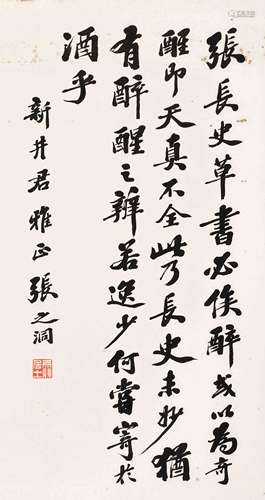 張長史草書必俟醉或以為奇
醒即天真不全此乃長史未妙猶
有醉醒之辨若逸少何嘗寄於
酒乎
新井君雅正張之洞